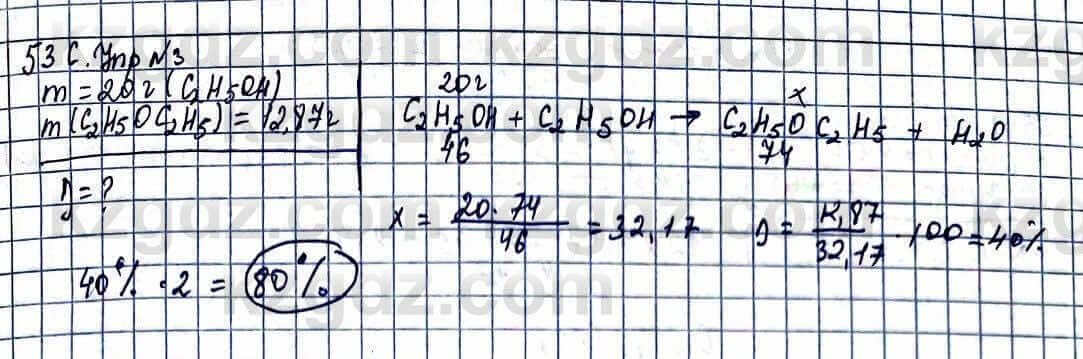 53 с. Упр №3
m = 20 г (C₂H₅OH)
m(C₂H₅OC₂H₅) = 12,87г
η = ?
20г
x
C₂H₅OH + C₂H₅OH → C₂H₅OC₂H₅ + H₂O
46
74
x = 20·74 / 46 = 32,17
η = 12,87 / 32,17 · 100 = 40%
40% · 2 = 80%
kzgdz.com